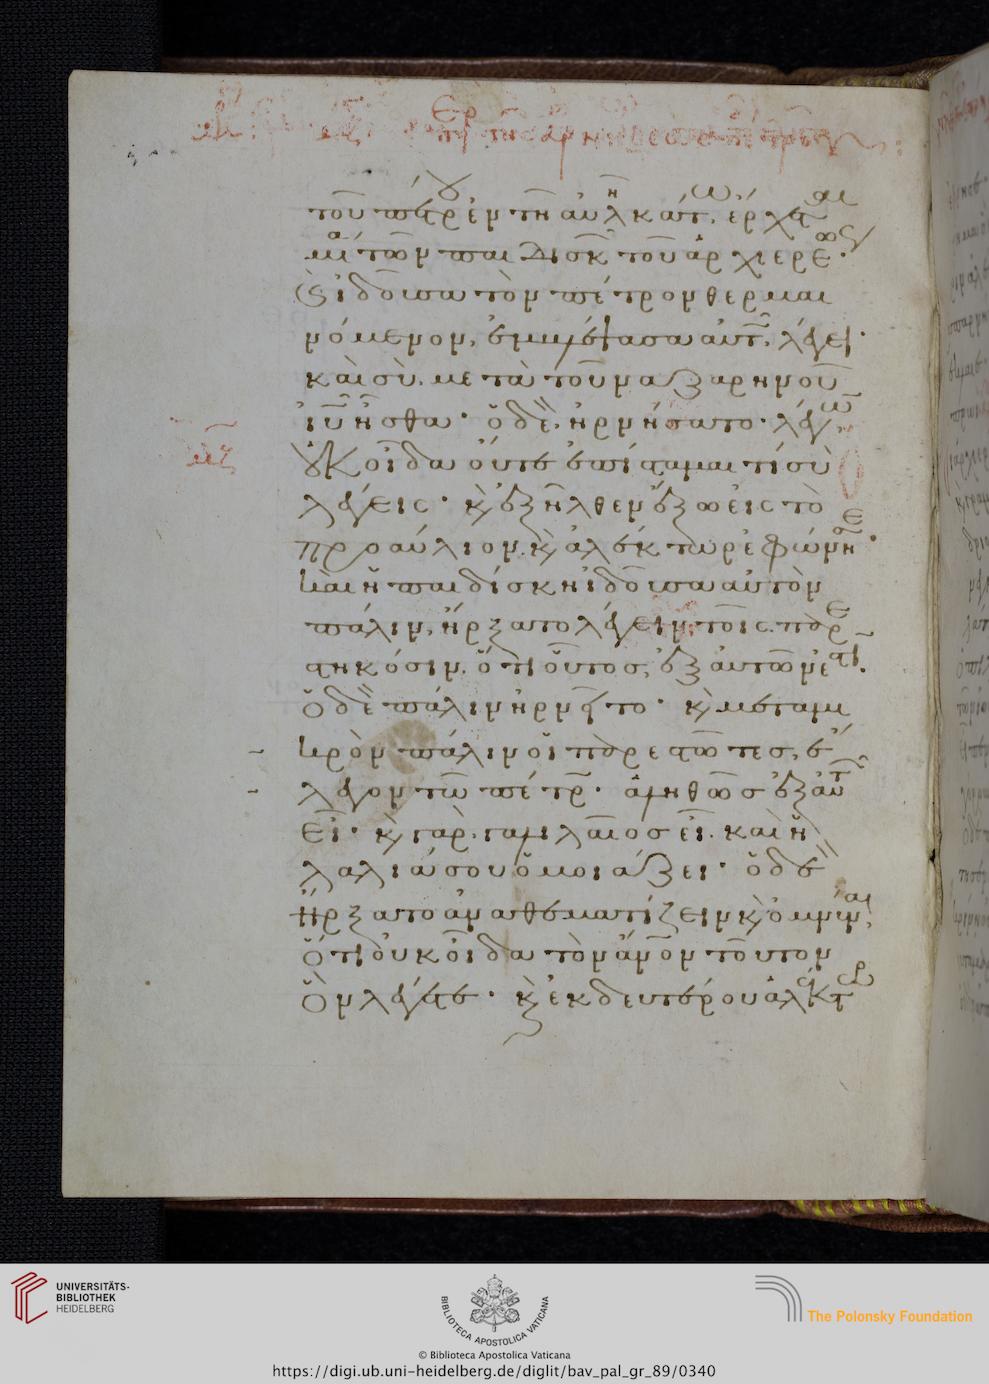 τοῦ πέτρου ἐν τῆ αὐλῆ κάτω, ἔρχεται
μία τῶν παιδισκῶν τοῦ ἀρχιερέως·
καὶ ἰδοῦσα τὸν πέτρον θερμαι
νόμενον, ἐμβλέψασα αὐτῶ, λέγει·
καὶ σὺ, μετὰ τοῦ ναζαρηνοῦ
ἰῦ ἦσθα· ὁ δὲ, ἠρνήσατο· λέγων,
οὐκ οἶδα οὔτε ἐπίσταμαι τί σὺ
λέγεις· κὶ ἐξῆλθεν ἔξω εἰς τὸ
προαύλιον, κὶ ἀλέκτωρ ἐφώνησε·
καὶ ἡ παιδίσκη ἰδοῦσα αὐτὸν
πάλιν, ἤρξατο λέγειν τοῖς παρε
στηκόσιν, ὅτι οὗτος, ἐξ αὐτῶν ἐστι.
ὁ δὲ πάλιν ἠρνεῖτο· κὶ μετὰ μι
κρὸν πάλιν οἱ παρεστῶτες, ἔ
λεγον τῶ πέτρω· ἀληθῶς ἐξ αὐτῶν
εἶ· κὶ γὰρ γαλιλαῖος εἶ. καὶ ἡ
λαλιά σου ὁμοιάζει· ὁ δὲ
ἤρξατο ἀναθεματίζειν κὶ ὀμνύναι,
ὅτι οὐκ οἶδα τὸν ἄνον τοῦτον
ὃν λέγετε· κὶ ἐκ δευτέρου ἀλέκτωρ
UNIVERSITÄTS-
BIBLIOTHEK
HEIDELBERG
BIBLIOTECA APOSTOLICA VATICANA
The Polonsky Foundation
© Biblioteca Apostolica Vaticana
https://digi.ub.uni-heidelberg.de/diglit/bav_pal_gr_89/0340